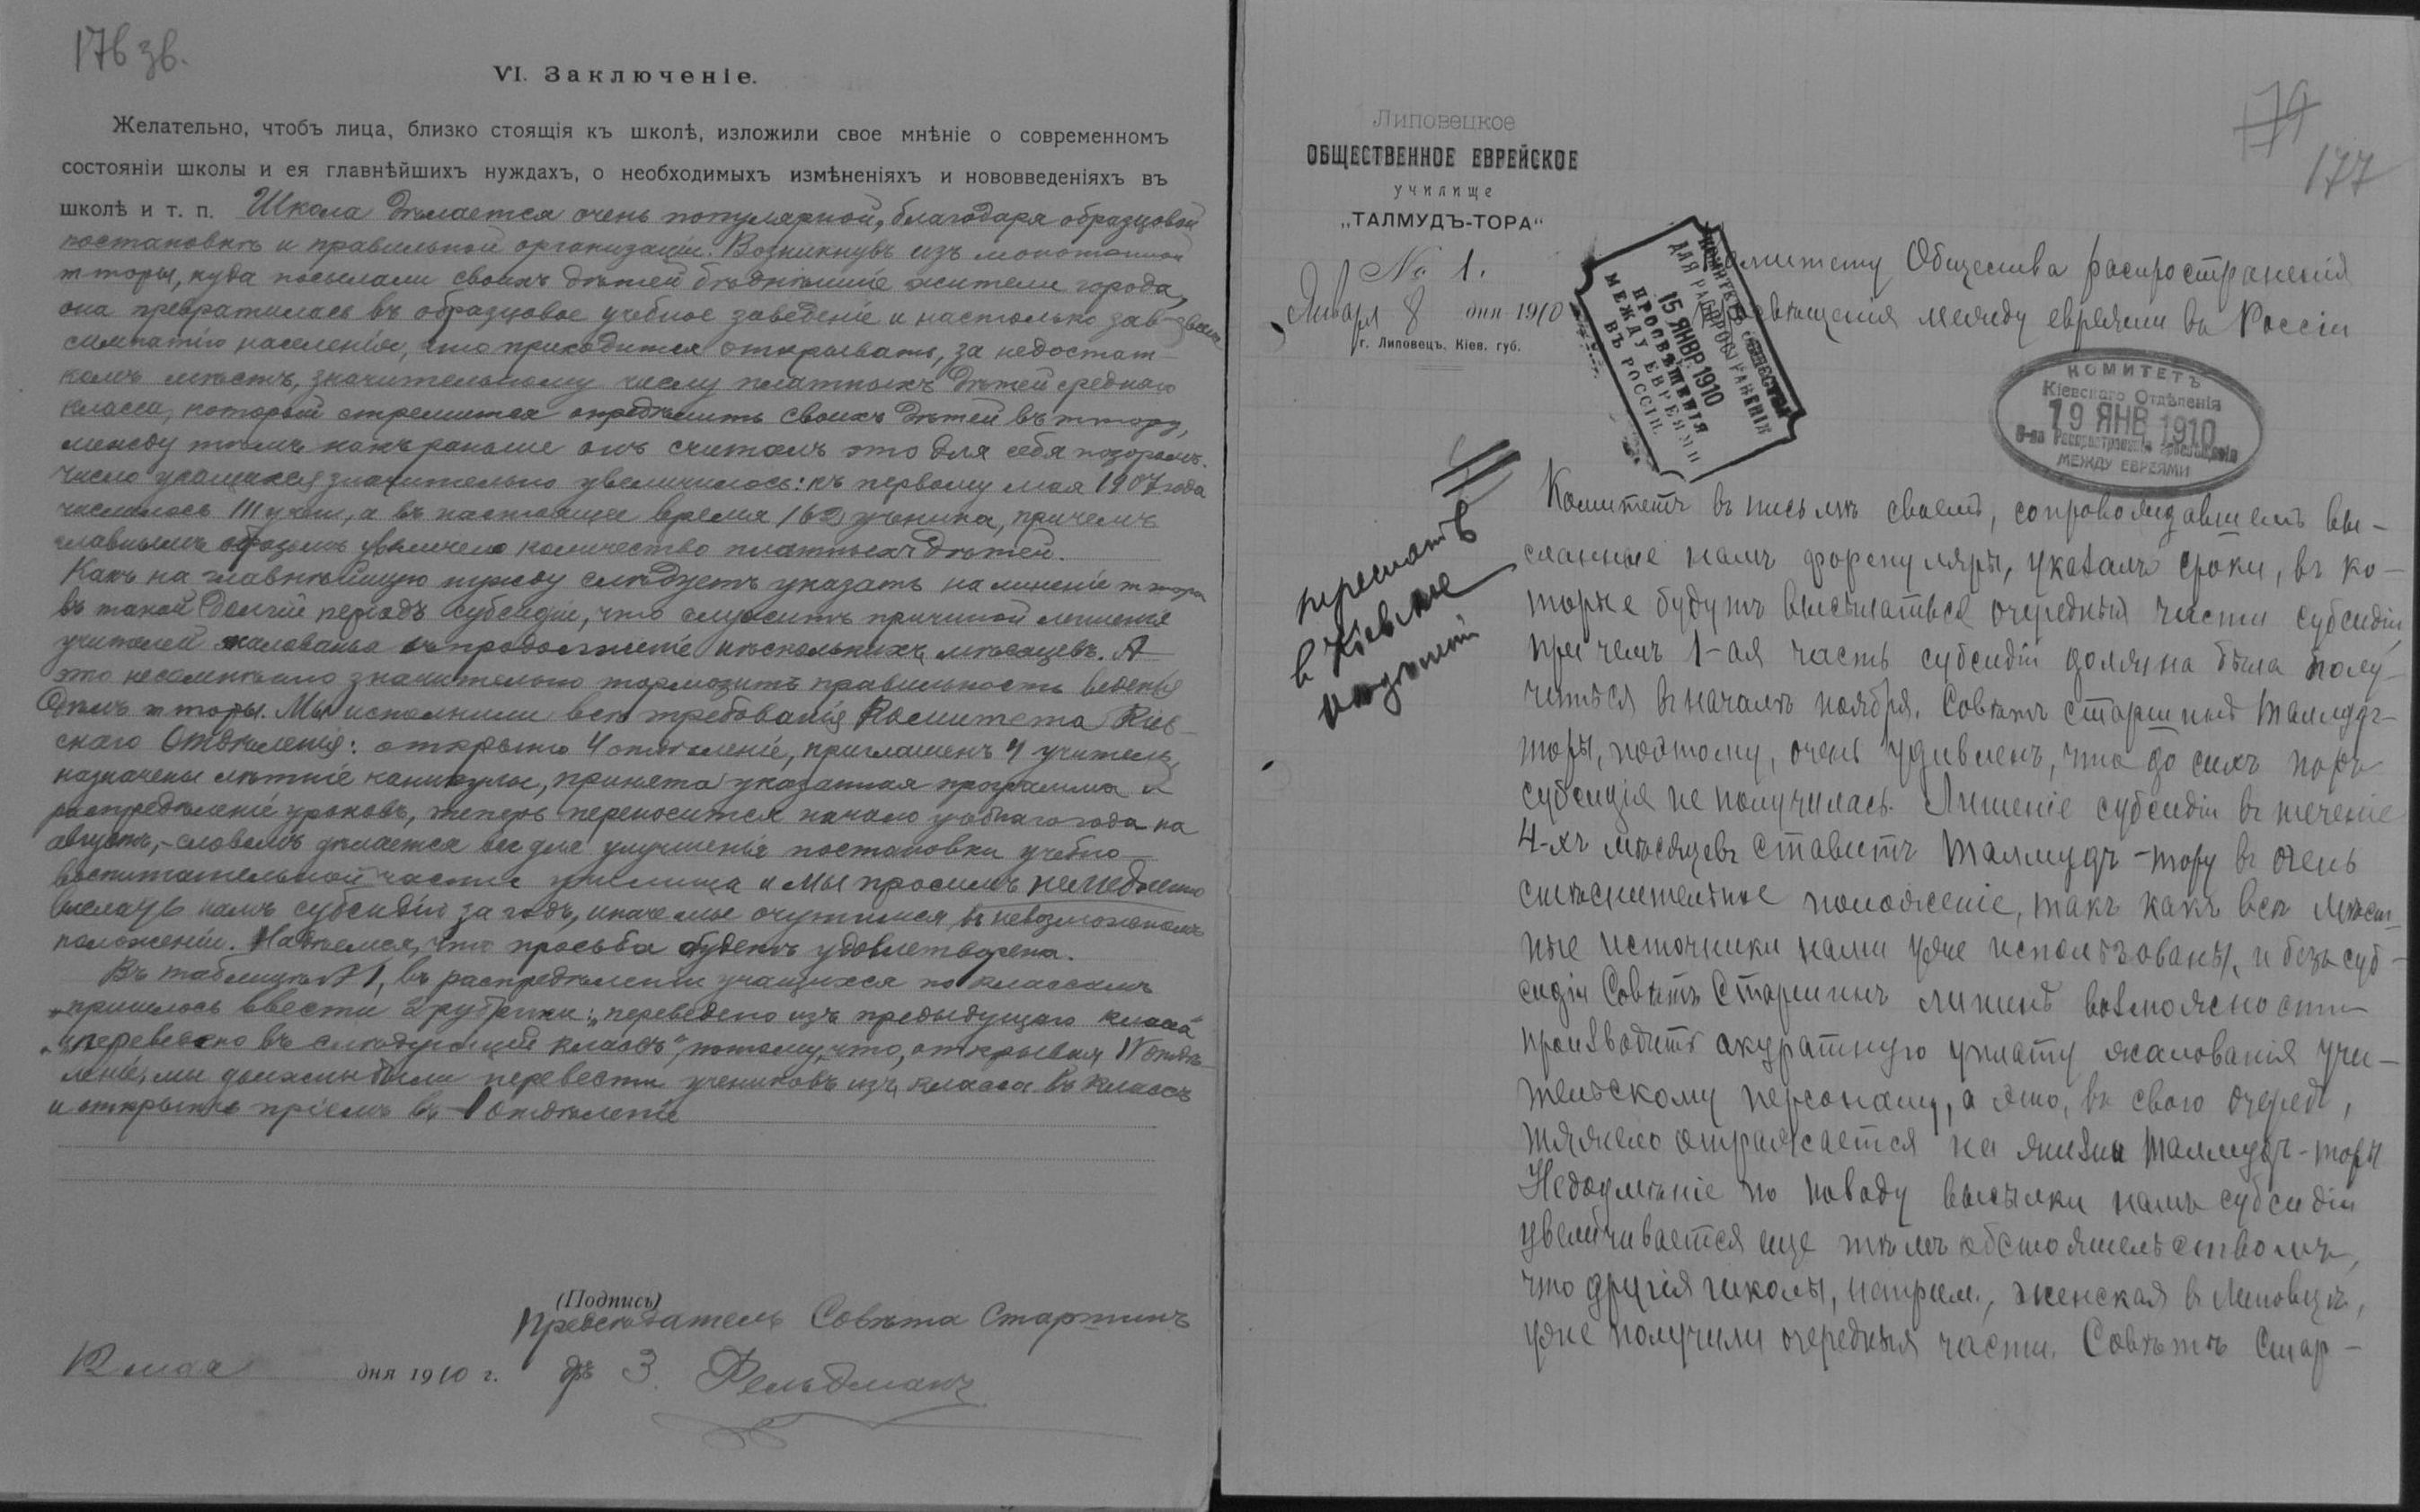 176 зв.
VI. Заключеніе.
Желательно, чтобъ лица, близко стоящія къ школѣ, изложили свое мнѣніе о современномъ
состояніи школы и ея главнѣйшихъ нуждахъ, о необходимыхъ измѣненіяхъ и нововведеніяхъ въ
школѣ и т. п. Школа дѣлается очень популярной, благодаря образцовой
постановкѣ и правильной организаціи. Возникнувъ изъ
т торы, куда посылали своихъ дѣтей бѣднѣйшіе жители города,
она превратилась въ образцовое учебное заведеніе и настолько
симпатію населенія, что приходится открывать, за недостат-
комъ мѣстъ, значительному числу платныхъ дѣтей средняго
класса, который стремится опредѣлить своихъ дѣтей въ т тору,
между тѣмъ какъ раньше онъ считалъ это для себя позоромъ.
Число учащихся значительно увеличилось: къ первому мая 1907 года
числилось 111 учен, а въ настоящее время 162 ученика, причемъ
главнымъ образомъ увеличено количество платныхъ дѣтей.
Какъ на главнѣйшую нужду слѣдуетъ указать на лишеніе т тора
въ такой долгій періодъ субсидіи, что служитъ причиной лишенія
учителей жалованья въ продолженіе нѣсколькихъ мѣсяцевъ. А
это несомнѣнно значительно тормозитъ правильность веденія
дѣлъ т торы. Мы исполнили всѣ требованія Комитета Кіев-
скаго Отдѣленія: открыто 4 отдѣленіе, приглашенъ 4 учитель,
назначены лѣтніе каникулы, принята указанная программа и
распредѣленіе уроковъ, теперь переносится начало учебнаго года на
августъ,- словомъ дѣлается все для улучшенія постановки учебно-
воспитательной части училища и мы просимъ немедленно
выслать намъ субсидію за годъ, иначе мы очутимся въ невозможномъ
положеніи. Надѣемся, что просьба будетъ удовлетворена.
Въ таблицѣ № 1, въ распредѣленіи учащихся по классамъ
пришлось ввести 2 рубрики: „переведено изъ предыдущаго класса"
и „переведено въ слѣдующій классъ", потому, что, открывая IV отдѣ-
леніе, мы должны были перевести учениковъ изъ класса въ классъ
и открыть пріемъ въ 1 отдѣленіе
(Подпись)
Предсѣдатель Совѣта Старшинъ
12 мая дня 1910 г. др З. Фельдманъ
79
177
Липовецкое
ОБЩЕСТВЕННОЕ ЕВРЕЙСКОЕ
училище
„ТАЛМУДЪ-ТОРА"
№ 1.
Января 8 дня 1910
г. Липовецъ, Кіев. губ.
КОМИТЕТЪ ОБЩЕСТВА
ДЛЯ РАСПРОСТРАНЕНІЯ
15 ЯНВР 1910
ПРОСВѢЩЕНІЯ
МЕЖДУ ЕВРЕЯМИ
ВЪ РОССІИ.
Комитету Общества распространенія
просвѣщенія между евреями въ Россіи
КОМИТЕТЪ
Кіевскаго Отдѣленія
19 ЯНВ 1910
О-ва Распространенія Просвѣщенія
МЕЖДУ ЕВРЕЯМИ
переслать
в Кіевское
Отдѣленіе
Комитетъ въ письмѣ своемъ, сопровождавшемъ вы-
сланные намъ формуляры, указалъ сроки, въ ко-
торые будутъ высылаться очередныя части субсидіи,
при чемъ 1-ая часть субсидіи должна была полу-
читься въ началѣ ноября. Совѣтъ старшинъ Талмудъ-
торы, поэтому, очень удивленъ, что до сихъ поръ
субсидія не получилась. Лишеніе субсидіи въ теченіе
4-хъ мѣсяцевъ ставитъ Талмудъ-тору въ очень
стѣснительное положеніе, такъ какъ всѣ мѣст-
ные источники нами уже использованы, и безъ суб-
сидіи Совѣтъ Старшинъ лишенъ возможности
производить акуратную уплату жалованія учи-
тельскому персоналу, а это, въ свою очередь,
тяжело отражается на жизни Талмудъ-торы
Недоумѣніе по поводу высылки намъ субсидіи
увеличивается еще тѣмъ обстоятельствомъ,
что другія школы, наприм., женская в Липовцѣ,
уже получили очередныя части. Совѣтъ Стар-